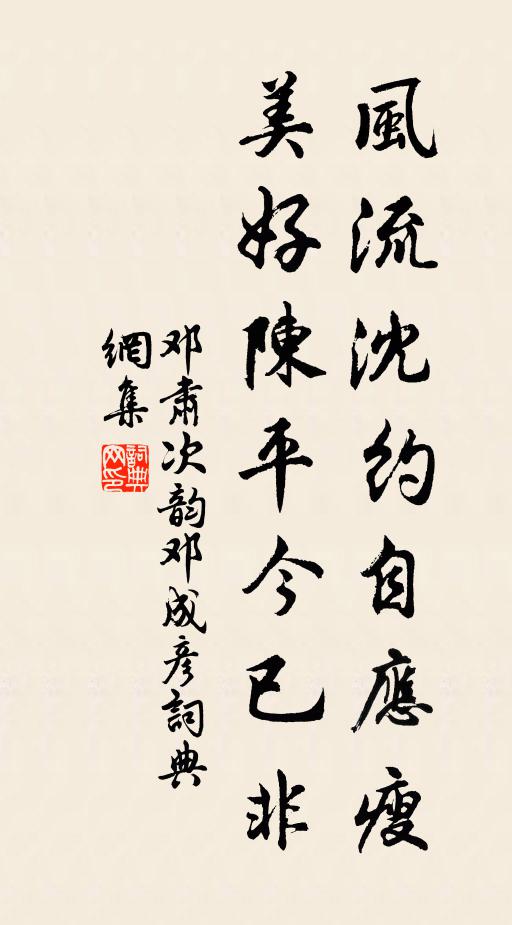 風流沈約自應瘦
美好陳平今已非
邓肅次韵邓成彦詞典
網集
詞典网印